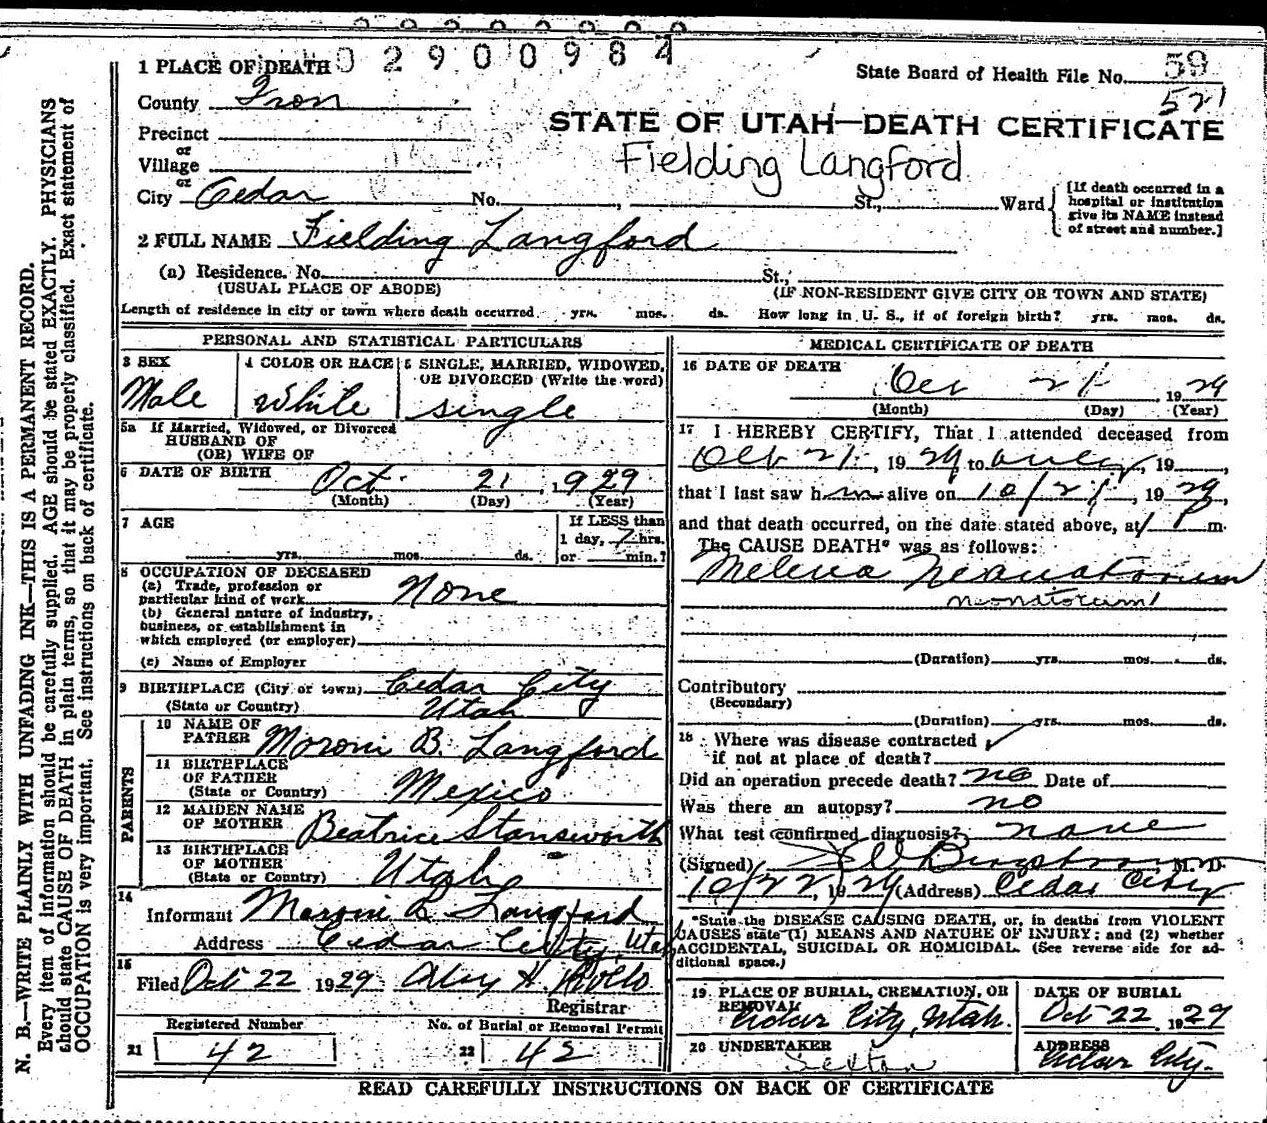 0 2 9 0 0 9 8 4
1 PLACE OF DEATH
State Board of Health File No. 59
521
County Iron
STATE OF UTAH—DEATH CERTIFICATE
Precinct
or
Village
Fielding Langford
or
City Cedar No. , St., Ward
[If death occurred in a
hospital or institution
give its NAME instead
of street and number.]
2 FULL NAME Fielding Langford
(a) Residence. No. St.,
(USUAL PLACE OF ABODE) (IF NON-RESIDENT GIVE CITY OR TOWN AND STATE)
Length of residence in city or town where death occurred yrs. mos. ds. How long in U. S., if of foreign birth? yrs. mos. ds.
PERSONAL AND STATISTICAL PARTICULARS
3 SEX
Male
4 COLOR OR RACE
White
5 SINGLE, MARRIED, WIDOWED,
OR DIVORCED (Write the word)
single
5a If Married, Widowed, or Divorced
HUSBAND OF
(OR) WIFE OF
6 DATE OF BIRTH Oct. 21, 1929
(Month) (Day) (Year)
7 AGE
yrs. mos. ds.
If LESS than
1 day, 7 hrs.
or min.?
8 OCCUPATION OF DECEASED
(a) Trade, profession or
particular kind of work None
(b) General nature of industry,
business, or establishment in
which employed (or employer)
(c) Name of Employer
9 BIRTHPLACE (City or town) Cedar City
(State or Country) Utah
PARENTS
10 NAME OF
FATHER Moroni B. Langford
11 BIRTHPLACE
OF FATHER
(State or Country) Mexico
12 MAIDEN NAME
OF MOTHER Beatrice Stansworth
13 BIRTHPLACE
OF MOTHER
(State or Country) Utah
14
Informant Moroni B. Langford
Address Cedar City, Utah
15
Filed Oct 22 1929
Registrar
Registered Number
21 42
No. of Burial or Removal Permit
22 42
MEDICAL CERTIFICATE OF DEATH
16 DATE OF DEATH
Oct 21, 1929
(Month) (Day) (Year)
17 I HEREBY CERTIFY, That I attended deceased from
Oct 21, 1929 to only, 19 ,
that I last saw him alive on 10/21, 1929,
and that death occurred, on the date stated above, at 1 P m.
The CAUSE DEATH* was as follows:
Melena Neonatorum
neonatorum
(Duration) yrs. mos. ds.
Contributory
(Secondary)
(Duration) yrs. mos. ds.
18 Where was disease contracted
if not at place of death?
Did an operation precede death? no Date of
Was there an autopsy? no
What test confirmed diagnosis? none
(Signed) M. D.
10/22, 1929 (Address) Cedar City
*State the DISEASE CAUSING DEATH, or, in deaths from VIOLENT
CAUSES state (1) MEANS AND NATURE OF INJURY; and (2) whether
ACCIDENTAL, SUICIDAL OR HOMICIDAL. (See reverse side for ad-
ditional space.)
19 PLACE OF BURIAL, CREMATION, OR
REMOVAL
Cedar City, Utah.
DATE OF BURIAL
Oct 22, 1929
20 UNDERTAKER
Sexton
ADDRESS
Cedar City.
READ CAREFULLY INSTRUCTIONS ON BACK OF CERTIFICATE
N. B.—WRITE PLAINLY WITH UNFADING INK—THIS IS A PERMANENT RECORD.
Every item of information should be carefully supplied. AGE should be stated EXACTLY. PHYSICIANS
should state CAUSE OF DEATH in plain terms, so that it may be properly classified. Exact statement of
OCCUPATION is very important. See instructions on back of certificate.